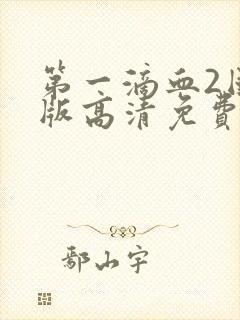 第一滴血2国
版高清免费
鄢山宇